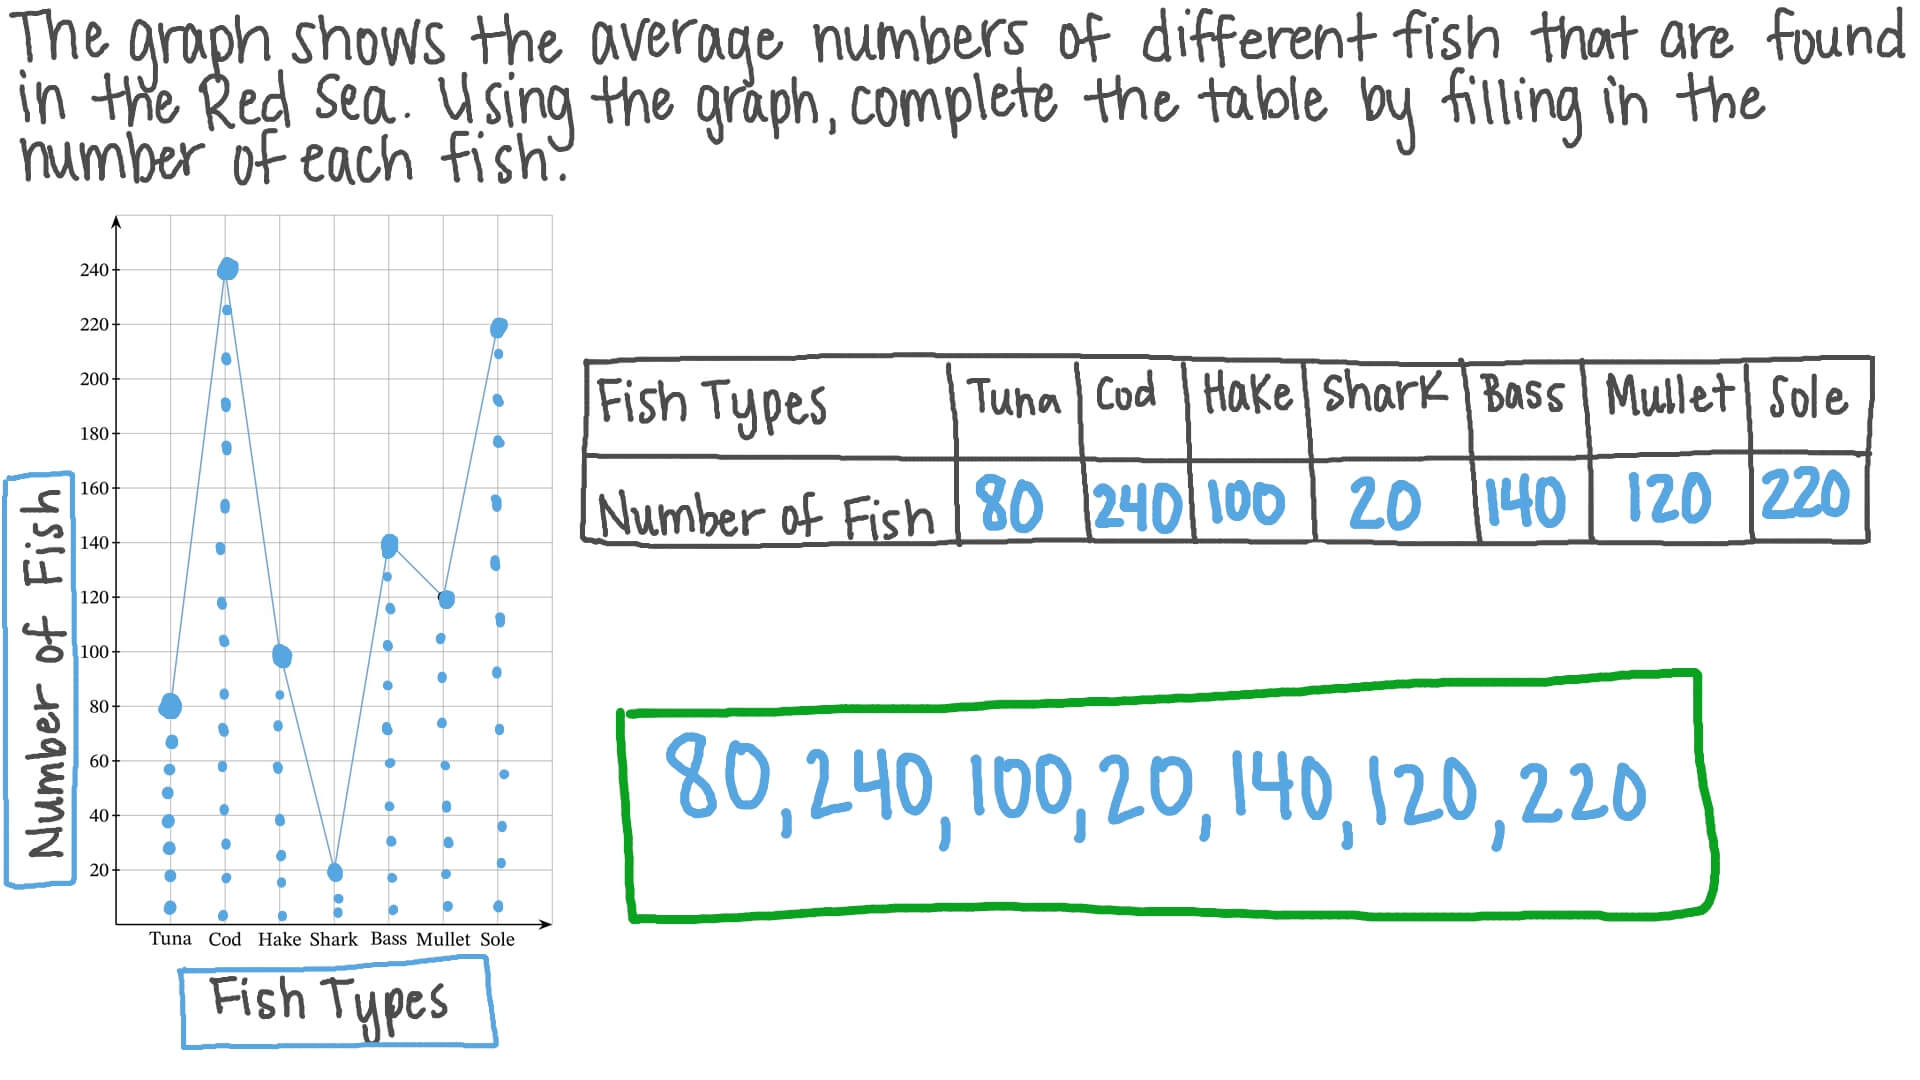 The graph shows the average numbers of different fish that are found
in the Red Sea. Using the graph, complete the table by filling in the
number of each fish.
240
220
200
180
160
140
120
100
80
60
40
20
Number of Fish
Tuna Cod Hake Shark Bass Mullet Sole
Fish Types
Fish Types Tuna Cod Hake Shark Bass Mullet Sole
Number of Fish 80 240 100 20 140 120 220
80, 240, 100, 20, 140, 120, 220